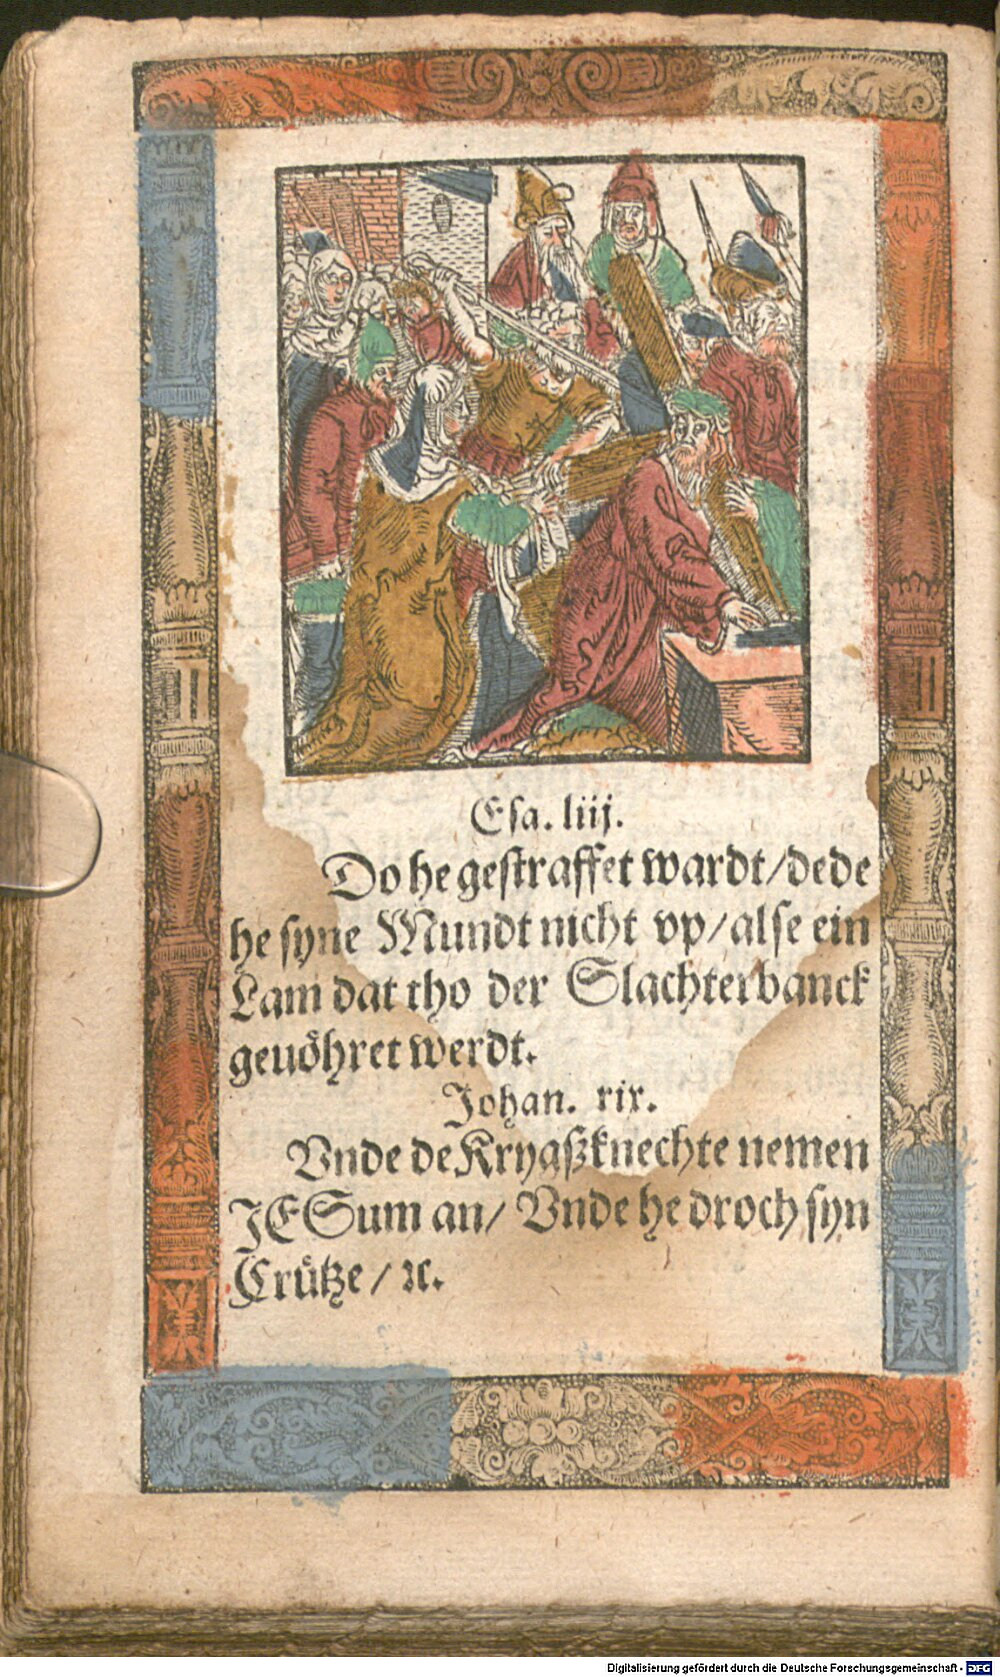 Esa. liij.
Do he gestraffet wardt/dede
he syne Mundt nicht vp/alse ein
Lam dat tho der Slachterbanck
gevöhret werdt.
Johan. xix.
Vnde de Krygßknechte nemen
JESum an/ Vnde he droch syn
Crütze/ ꝛc.
Digitalisierung gefördert durch die Deutsche Forschungsgemeinschaft - DFG